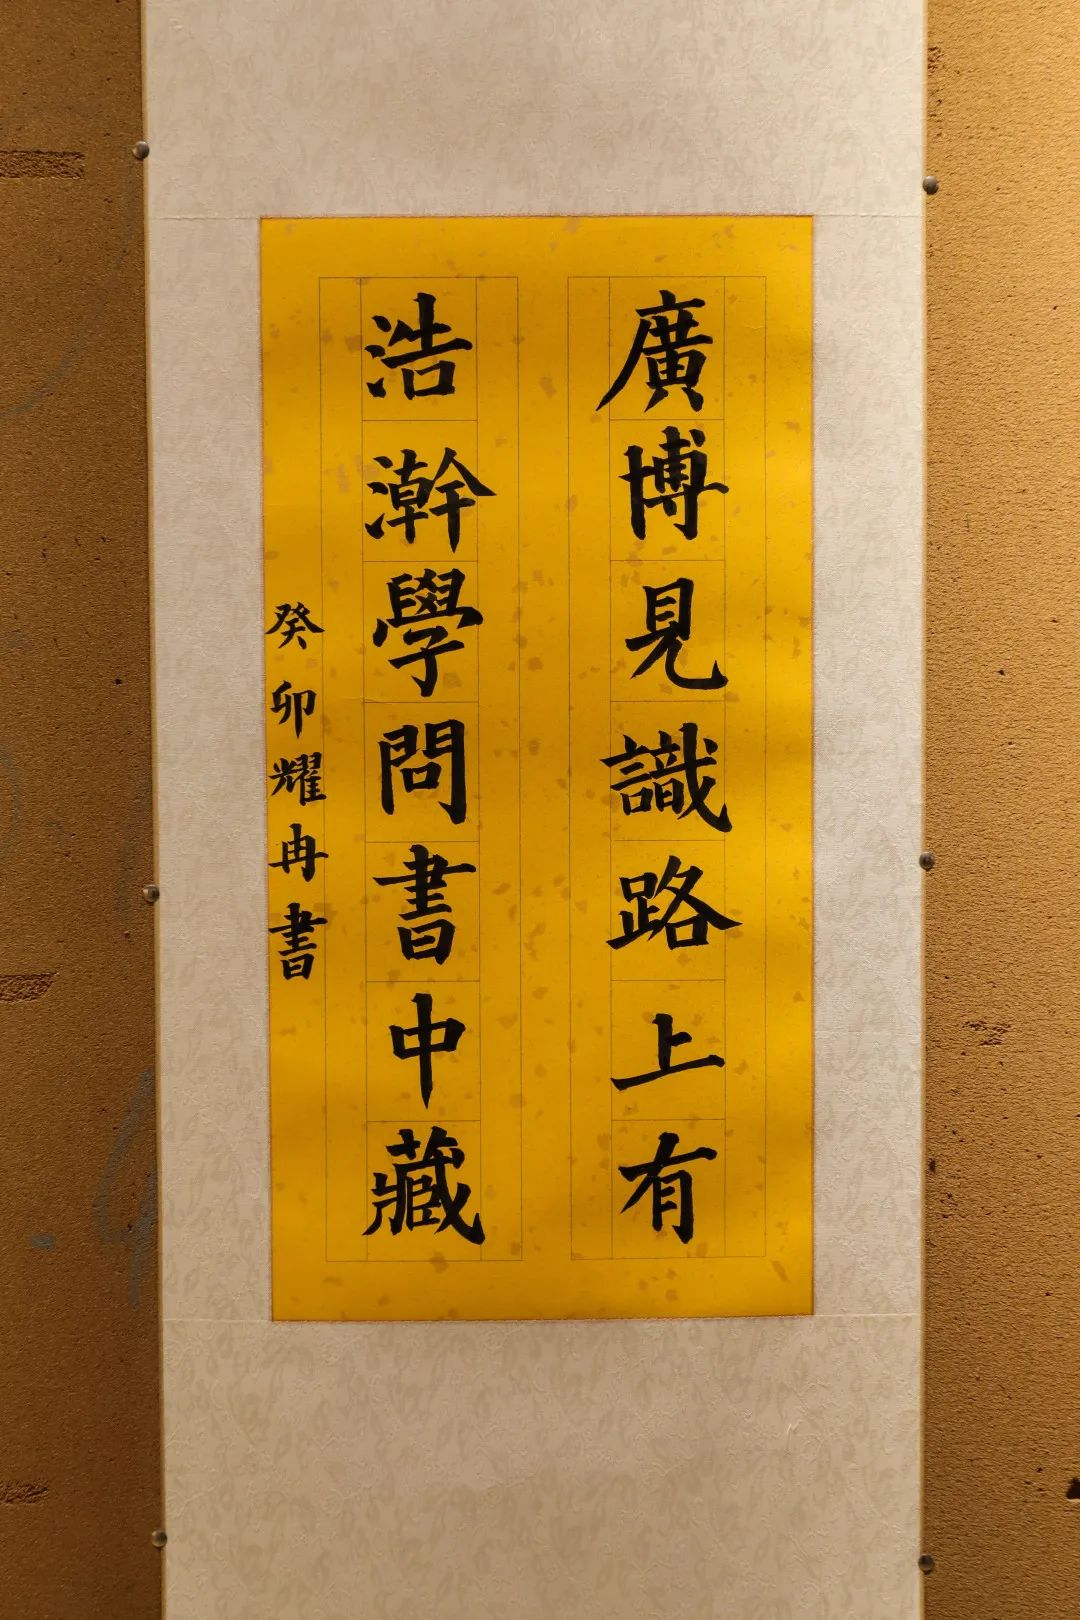 廣博見識路上有
浩瀚學問書中藏
癸卯耀冉書